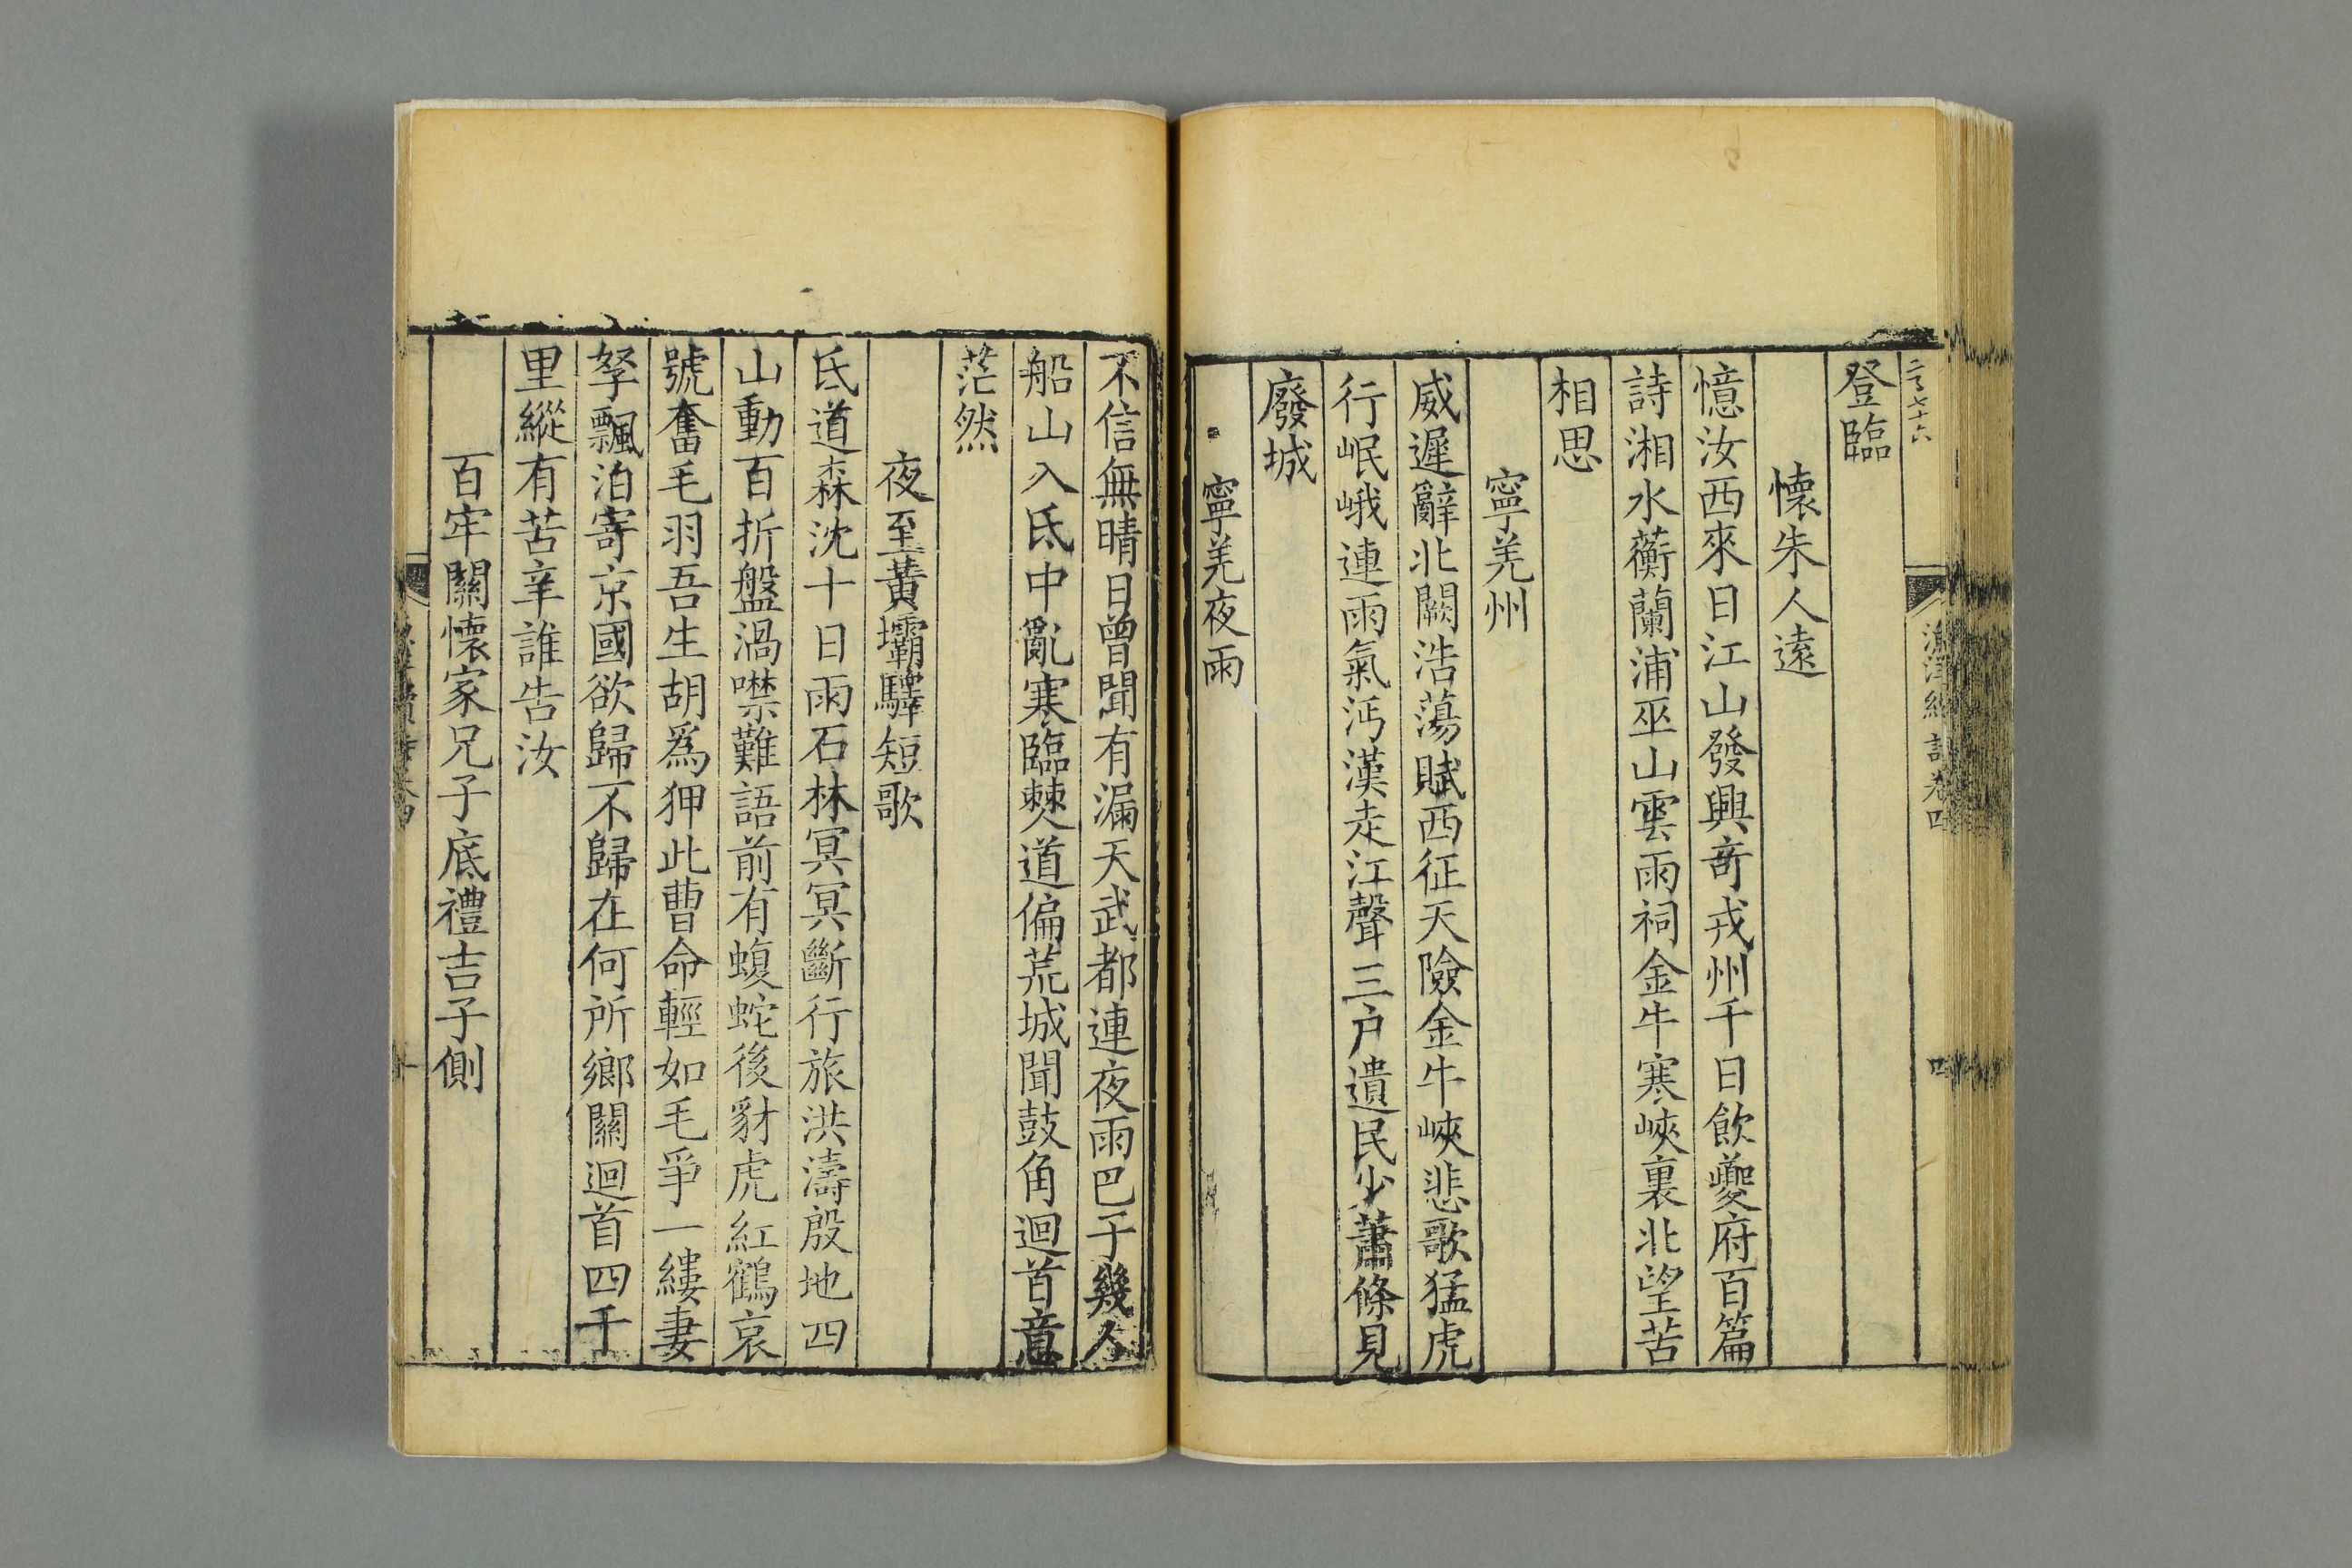 登臨
懷朱人遠
憶汝西來日江山發興奇戎州千日飲夔府百篇
詩湘水蘅蘭浦巫山雲雨祠金牛寒峽裏北望苦
相思
寧羌州
威遲辭北闕浩蕩賦西征天險金牛峽悲歌猛虎
行岷峨連雨氣沔漢走江聲三户遺民少蕭條見
廢城
寧羌夜雨
不信無晴日曾聞有漏天武都連夜雨巴子幾人
船山入氐中亂寒臨僰道偏荒城聞鼓角迴首意
茫然
夜至黃壩驛短歌
氐道森沈十日雨石林冥冥斷行旅洪濤殷地四
山動百折盤渦噤難語前有蝮蛇後豺虎紅鶴哀
號奮毛羽吾生胡爲狎此曹命輕如毛爭一縷妻
孥飄泊寄京國欲歸不歸在何所鄉關迴首四千
里縱有苦辛誰告汝
百牢關懷家兄子底禮吉子側